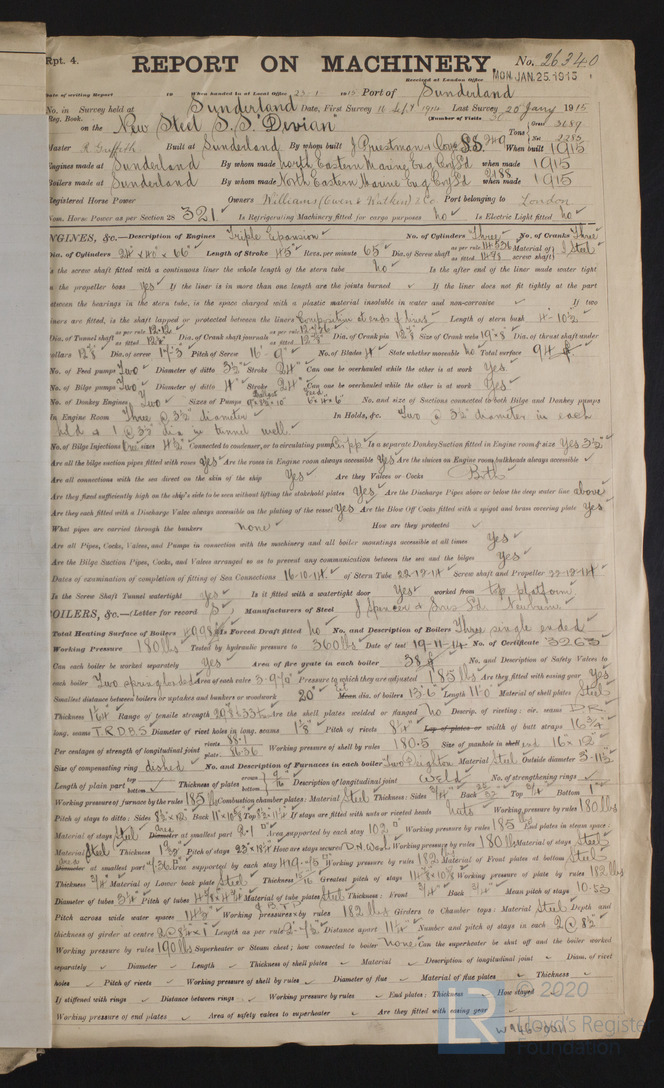 Rpt. 4.
REPORT ON MACHINERY. No. 26340
Received at London Office MON. JAN. 25. 1915
Date of writing Report 19 When handed in at Local Office 23·1· 1915 Port of Sunderland
No. in Survey held at Sunderland Date, First Survey 16 Sept 1914 Last Survey 20 Jany 1915
Reg. Book. (Number of Visits
on the New Steel S.S. "Devian" Tons Gross 3689 Net 2285
Master R. Griffith Built at Sunderland By whom built J Priestman & Coy SS. 240 When built 1915
Engines made at Sunderland By whom made North Eastern Marine Eng Coy Ld when made 1915
Boilers made at Sunderland By whom made North Eastern Marine Eng Coy Ld 2188 when made 1915
Registered Horse Power Owners Williams (Owen & Watkin) & Co Port belonging to London
Nom. Horse Power as per Section 28 321 Is Refrigerating Machinery fitted for cargo purposes no Is Electric Light fitted no
ENGINES, &c.—Description of Engines Triple Expansion No. of Cylinders Three No. of Cranks Three
Dia. of Cylinders 24" × 40" × 66" Length of Stroke 45" Revs. per minute 65 Dia. of Screw shaft as per rule 14.336 as fitted Material of screw shaft Steel
Is the screw shaft fitted with a continuous liner the whole length of the stern tube no Is the after end of the liner made water tight
in the propeller boss yes If the liner is in more than one length are the joints burned If the liner does not fit tightly at the part
between the bearings in the stern tube, is the space charged with a plastic material insoluble in water and non-corrosive If two
liners are fitted, is the shaft lapped or protected between the liners Composition at ends of liners Length of stern bush 4-10½
Dia. of Tunnel shaft as per rule as fitted Dia. of Crank shaft journals as per rule as fitted Dia. of Crank pin 12⅞ Size of Crank webs 19"×8 Dia. of thrust shaft under
collars 12⅞ Dia. of screw 17'3 Pitch of Screw 16'-9" No. of Blades 4 State whether moveable no Total surface 94
No. of Feed pumps Two Diameter of ditto 3½ Stroke 24" Can one be overhauled while the other is at work Yes
No. of Bilge pumps Two Diameter of ditto 4" Stroke 24" Can one be overhauled while the other is at work Yes
No. of Donkey Engines Two Sizes of Pumps No. and size of Suctions connected to both Bilge and Donkey pumps
In Engine Room Three @ 3½ diameter In Holds, &c. Two @ 3½ diameter in each
hold & 1 @ 3½ dia in tunnel well
No. of Bilge Injections One sizes 4½ Connected to condenser, or to circulating pump Is a separate Donkey Suction fitted in Engine room & size Yes 3½
Are all the bilge suction pipes fitted with roses yes Are the roses in Engine room always accessible yes Are the sluices on Engine room bulkheads always accessible
Are all connections with the sea direct on the skin of the ship Yes Are they Valves or Cocks Both
Are they fixed sufficiently high on the ship's side to be seen without lifting the stokehold plates Yes Are the Discharge Pipes above or below the deep water line above
Are they each fitted with a Discharge Valve always accessible on the plating of the vessel Yes Are the Blow Off Cocks fitted with a spigot and brass covering plate Yes
What pipes are carried through the bunkers none How are they protected
Are all Pipes, Cocks, Valves, and Pumps in connection with the machinery and all boiler mountings accessible at all times Yes
Are the Bilge Suction Pipes, Cocks, and Valves arranged so as to prevent any communication between the sea and the bilges Yes
Dates of examination of completion of fitting of Sea Connections 16-10-14 of Stern Tube 22-12-14 Screw shaft and Propeller 22-12-14
Is the Screw Shaft Tunnel watertight Yes Is it fitted with a watertight door Yes worked from top platform
BOILERS, &c.—(Letter for record S) Manufacturers of Steel J Spencer & Sons Ld. Newburn
Total Heating Surface of Boilers 4998 Is Forced Draft fitted no No. and Description of Boilers Three single ended
Working Pressure 180 lbs Tested by hydraulic pressure to 360 lbs Date of test 19-11-14 No. of Certificate 3263
Can each boiler be worked separately Yes Area of fire grate in each boiler 38 No. and Description of Safety Valves to
each boiler Two spring loaded Area of each valve Pressure to which they are adjusted 185 lbs Are they fitted with easing gear Yes
Smallest distance between boilers or uptakes and bunkers or woodwork 20" Mean dia. of boilers 13'-6" Length 11'0" Material of shell plates Steel
Thickness Range of tensile strength Are the shell plates welded or flanged no Descrip. of riveting: cir. seams D.R.
long. seams T.R.D.B.S Diameter of rivet holes in long. seams 1⅛ Pitch of rivets 8¼ Lap of plates or width of butt straps 16¾
Per centages of strength of longitudinal joint rivets 88.1 plate 86.36 Working pressure of shell by rules 180.5 Size of manhole in shell end 16" × 12"
Size of compensating ring dished No. and Description of Furnaces in each boiler Two Deighton Material Steel Outside diameter 3-11½
Length of plain part top bottom Thickness of plates crown bottom Description of longitudinal joint Weld No. of strengthening rings
Working pressure of furnace by the rules 185 lbs Combustion chamber plates: Material Steel Thickness: Sides Back Top Bottom 1"
Pitch of stays to ditto: Sides Back Top If stays are fitted with nuts or riveted heads nuts Working pressure by rules 180 lbs
Material of stays Steel Diameter at smallest part Area supported by each stay 102 Working pressure by rules 185 End plates in steam space:
Material Steel Thickness Pitch of stays How are stays secured D.N. Working pressure by rules 180 lbs Material of stays Steel
Diameter at smallest part Area supported by each stay Working pressure by rules 182 Material of Front plates at bottom Steel
Thickness Material of Lower back plate Steel Thickness Greatest pitch of stays Working pressure of plate by rules 182 lbs
Diameter of tubes 3¼ Pitch of tubes Material of tube plates Steel Thickness: Front ¾ Back ¾ Mean pitch of stays 10.53
Pitch across wide water spaces 14½ Working pressures by rules 182 lbs Girders to Chamber tops: Material Steel Depth and
thickness of girder at centre 2@8½×1 Length as per rule 2-7½ Distance apart 11¼ Number and pitch of stays in each 2@8½
Working pressure by rules 190 lbs Superheater or Steam chest; how connected to boiler None Can the superheater be shut off and the boiler worked
separately Diameter Length Thickness of shell plates Material Description of longitudinal joint Diam. of rivet
holes Pitch of rivets Working pressure of shell by rules Diameter of flue Material of flue plates Thickness
If stiffened with rings Distance between rings Working pressure by rules End plates: Thickness How stayed
Working pressure of end plates Area of safety valves to superheater Are they fitted with easing gear
© 2020
LR
Lloyd's Register
Foundation
W946-0011